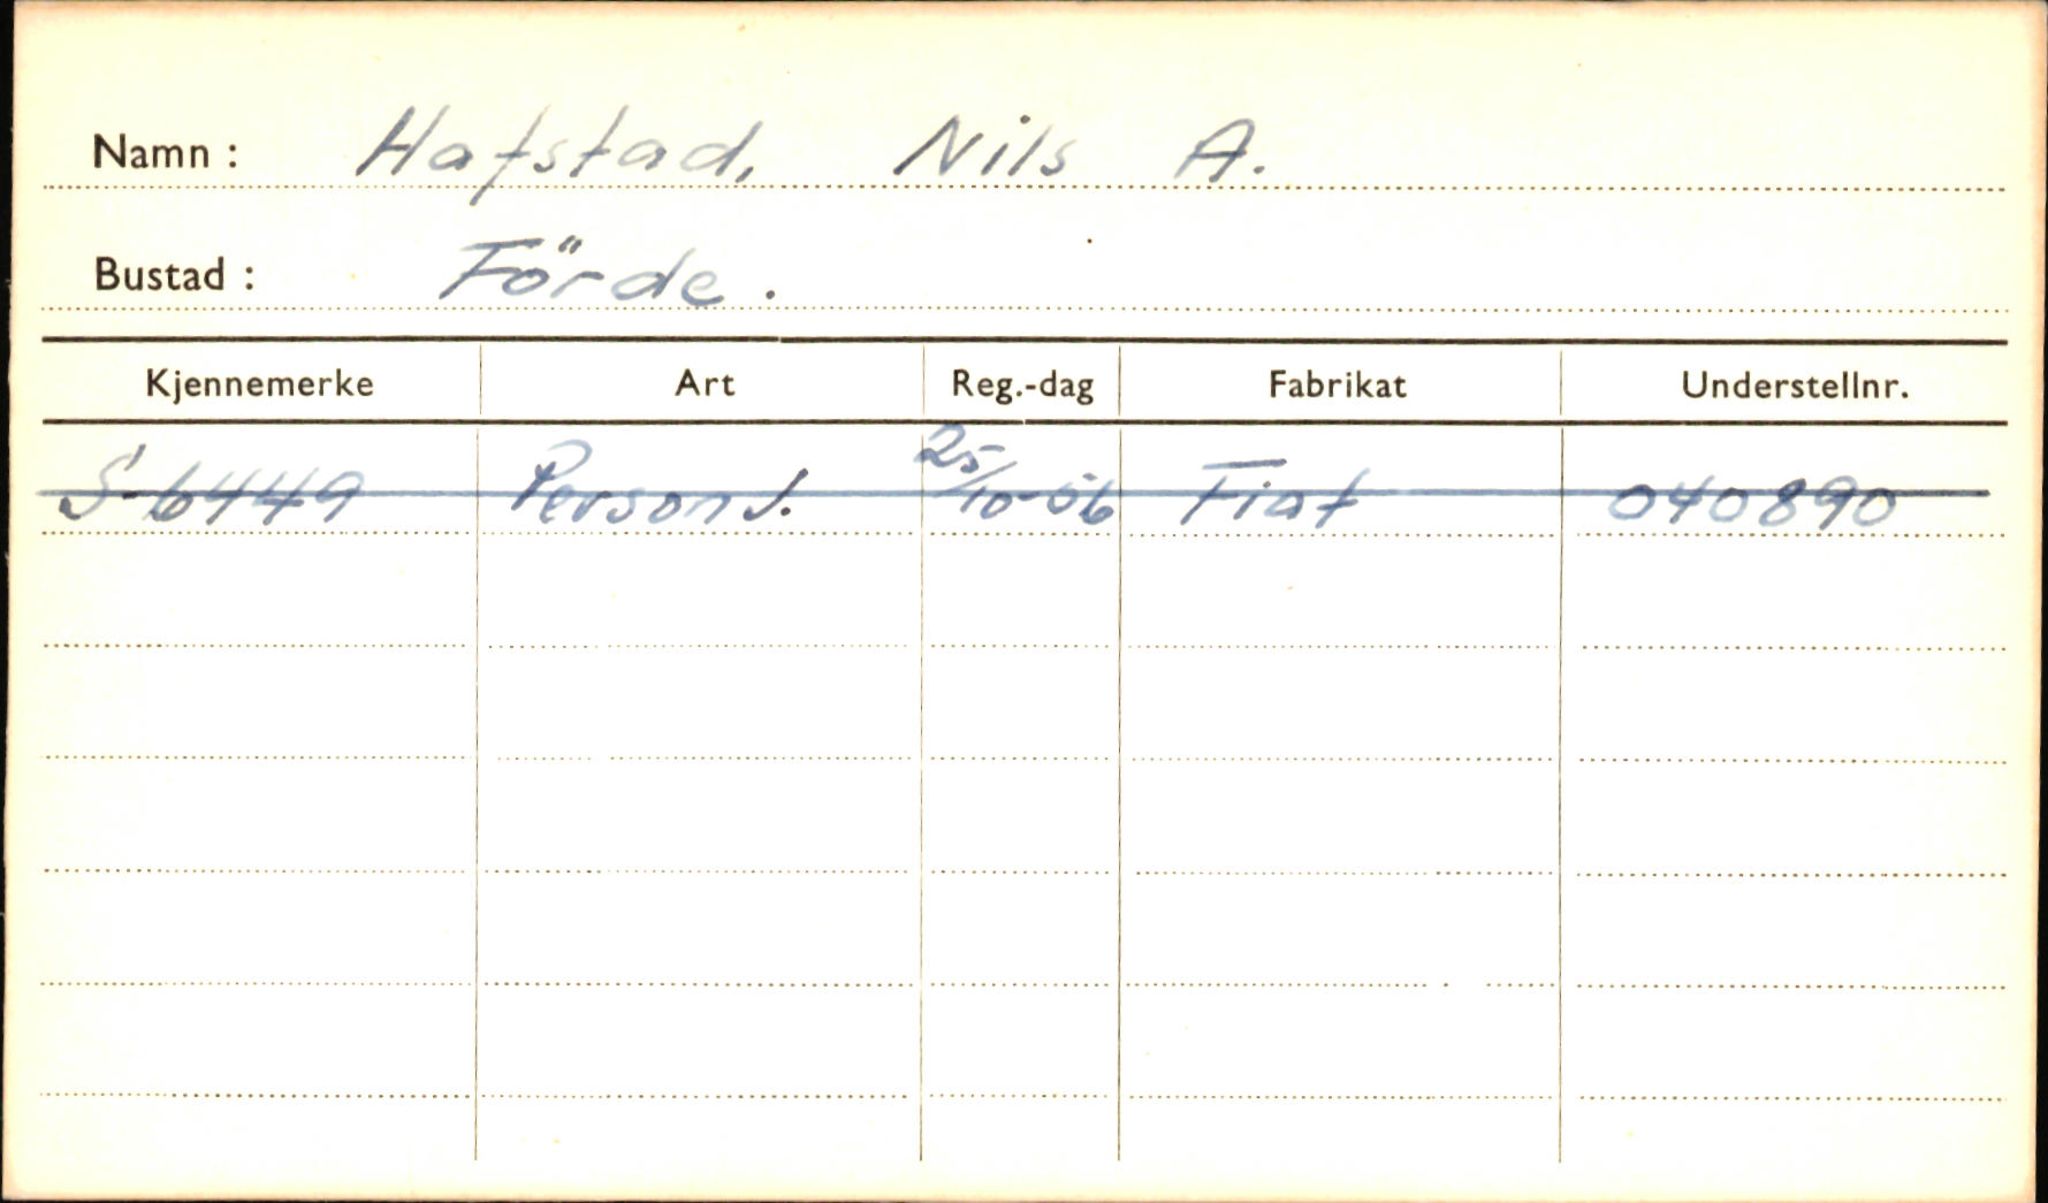 Namn: Hafstad, Nils A.
Bustad: Förde.
Kjennemerke Art Reg.-dag Fabrikat Understellnr.
S-6449 Person J. 25/10-56 Fiat 040890